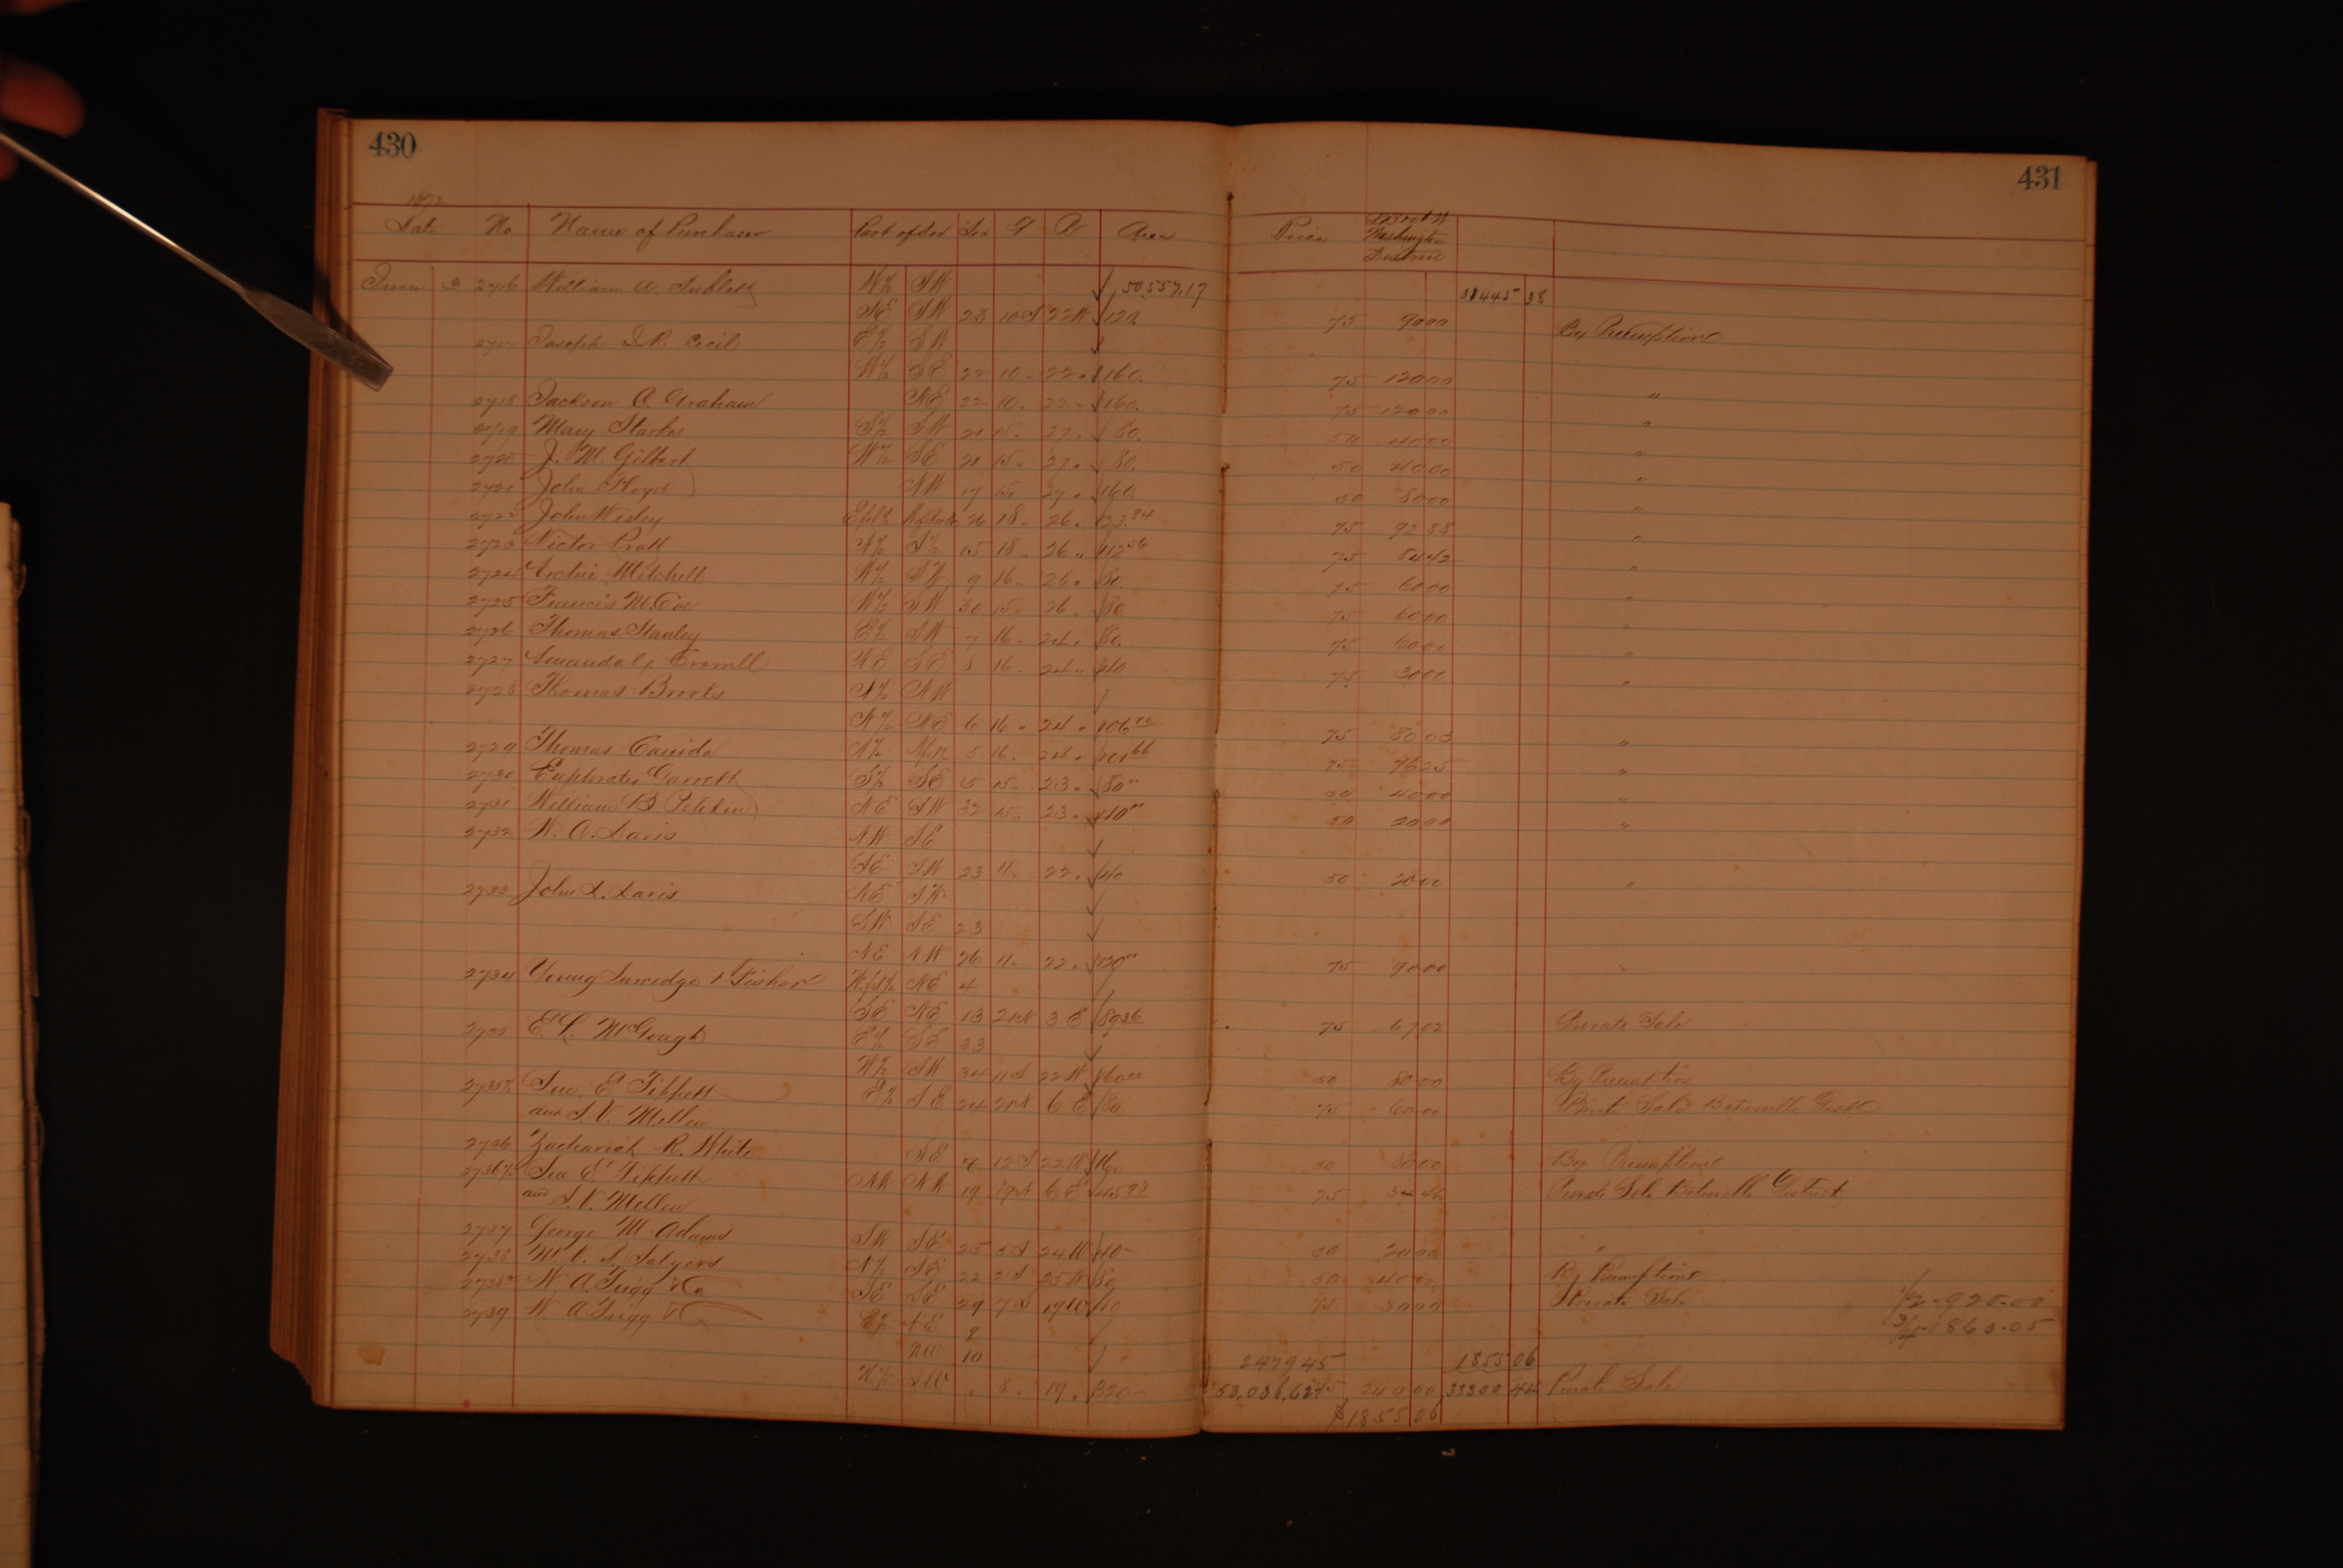 430
431
Date No. Name of Purchaser Part of Sec Sec T R Area Price Washington District
June 3 2716 William A. Sublett W½ SW 50,557.17 31445 38
SE SW 23 10 S 22 W 120. 75 90 00 By Preemption
2717 Joseph D.R. Cecil E½ SW
W½ SE 22 10 " 22 " 160. 75 120 00 "
2718 Jackson A. Graham NE 22 10 " 22 " 160. 75 120 00 "
2719 Mary Starks S½ SW 21 15 " 27 " 80. 50 40 00 "
2720 J. M. Gilbert W½ SE 21 15 " 27 " 80. 50 40 00 "
2721 John Floyd NW 17 15 " 27 " 160. 50 80 00 "
2722 John Wesley 26 18 " 26 " 123.84 75 92 88 "
2723 Victor Pratt N½ S½ 15 18 " 26 " 112 56 75 84 42 "
2724 Mitchell W½ 9 16 " 26 " 80. 75 60 00 "
2725 Francis M. Coe W½ SW 30 15 " 26 " 80 75 60 00 "
2726 Thomas Stanley E½ SW 7 16 " 24 " 80. 75 60 00 "
2727 NE SE 8 16 " 24 " 40. 75 30 00 "
2728 Thomas Brooks S½ NW
N½ NE 6 16 " 24 " 106 75 80 00 "
2729 Thomas N½ 5 16 " 24 " 101 66 75 76 25 "
2730 Garrett S½ SE 15 " 23 " 80 50 40 00 "
2731 William B. NE SW 32 15 " 23 " 40 50 20 00 "
2732 W. A. Davis NW SE
SE SW 23 11 " 22 " 40 50 20 00 "
2733 John D. Davis NE
SW SE 23
NE NW 26 11 " 22 " 120 75 90 00 "
2734 Young & Fisher NE 4
SE NE 13 2 N 3 E 89 36 75 67 02 Private Sale
2735 E. L. McGough E½ SE 33
W½ SW 34 11 S 22 W 160 00 50 80 00 By Preemption
2735½ Geo. E. Tippett E½ SE 24 21 N 6 E 80 75 60 00 Private Sale Batesville Dist
and S. V. Mellen
2736 Zachariah R. White SE 7 12 S 22 W 160 50 80 00 By Preemption
2736½ Geo E. Tippett 19 19 N 6 E 45 93 75 Private Sale Batesville District
and S. V. Mellen
2737 George M Adams SW SE 25 5 S 24 W 40 50 20 00 "
2738 M. V. Salyers N½ SE 22 2 S 25 W 80 50 40 00 By Preemption
2738½ W. A. Trigg & Co SE SE 29 7 S 19 W 40 75 30 00 Private Sale ½ - 925.00
2739 W. A Trigg & Co E½ 9 ¾ - 860.05
NW 10 2479.45 1855 06
N½ SW " 8 " 19 " 320 53,036.62 75 240 00 33300 44 Private Sale
$1855 06